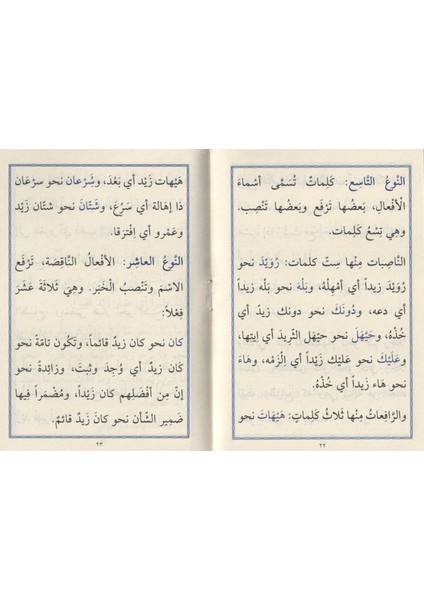 النَّوعُ التَّاسِع: كَلِماتٌ تُسَمَّى أسْماءَ
الْأفْعالِ، بَعضُها تَرْفَع وبَعضُها تَنْصِب،
وهِي تِسْعُ كَلِمات.
النَّاصِبات مِنْها سِتّ كلمات: رُوَيْدَ نحو
رُوَيْدَ زَيداً أي أمْهِلْهُ، وبَلْهَ نحو بَلْه زيداً
أي دعه، ودُونَكَ نحو دونك زيداً أي
خُذْهُ، وحَيَّهَل نحو حيّهل الثَّرِيدَ أي إيتِها،
وعَلَيْكَ نحو عَلَيْك زَيْداً أي الْزَمْهُ، وهَاءَ
نحو هَاء زَيداً أي خُذْهُ.
والرَّافِعاتُ مِنْها ثَلاثُ كَلِماتٍ: هَيْهَاتَ نحو
٢٢
هَيْهات زَيْد أي بَعُدَ، وسُرْعان نحو سرْعَان
ذا إهالة أي سَرُعَ، وشَتَّانَ نحو شتّان زَيْد
وعَمْرو أي افْتَرَقا.
النَّوعُ العاشِر: الأفْعالُ النَّاقِصَة، تَرْفَع
الاسْم وتَنْصبُ الْخَبَر. وهِيَ ثَلاثَةَ عَشَرَ
فِعْلاً:
كان نحو كانَ زَيدٌ قائماً، وتَكُون تامّة نحو
كانَ زَيدٌ أي وُجِدَ وثَبتَ، وزائِدة نحو
إنَّ مِن أفْضَلِهم كانَ زَيْداً، ومُضْمَراً فِيها
ضَمِير الشَّأن نحو كانَ زَيدٌ قائمٌ.
٢٣